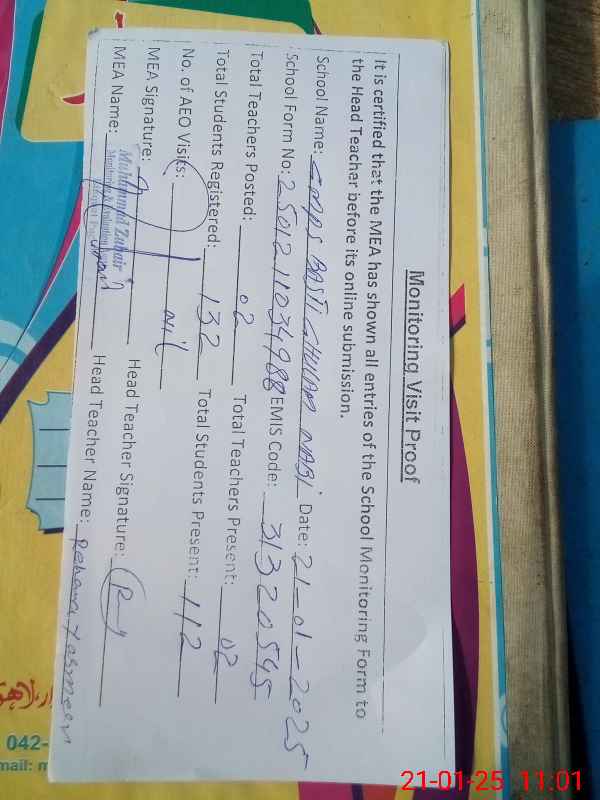 Monitoring Visit Proof
It is certified that the MEA has shown all entries of the School Monitoring Form to
the Head Teacher before its online submission.
School Name: GMPS BASTI GHULAM NABI Date: 21-01-2025
School Form No: 2501211034988 EMIS Code: 31320545
Total Teachers Posted: 02 Total Teachers Present: 02
Total Students Registered: 132 Total Students Present: 112
No. of AEO Visits: Nil
MEA Signature: Head Teacher Signature:
MEA Name: Muhammad Zubair Head Teacher Name: Rehana Yasmeen
042-
mail: m
21-01-25 11:01